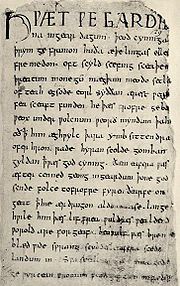 HǷÆT ǷE GARDE
na ingear dagum. þeod cyninga
þrym ge frunon huða æþelingas elle
fremedon. oft scyld scefing sceaþe
þreatum monegū mægþum meodo setla
of teah egsode eorl syððan ærest ƿear
fea sceaft funden he þæs frofre geba
ƿeox under ƿolcnum ƿeorð myndum þah
oð þ him æghƿylc þara ymb sittendra
ofer hron rade hyran scolde gomban
gyldan þ ƿæs god cyning. ðæm eafera ƿæs
æfter cenned geong ingeardum þone god
sende folce tofrofre fyren ðearfe on
geat þ hie ær drugon aldor ase. lange
hƿile him þæs lif frea ƿuldres ƿealdend
ƿorold are for geaf. beoƿulf ƿæs breme
blæd ƿide sprang scyldes eafera scede
landum in.